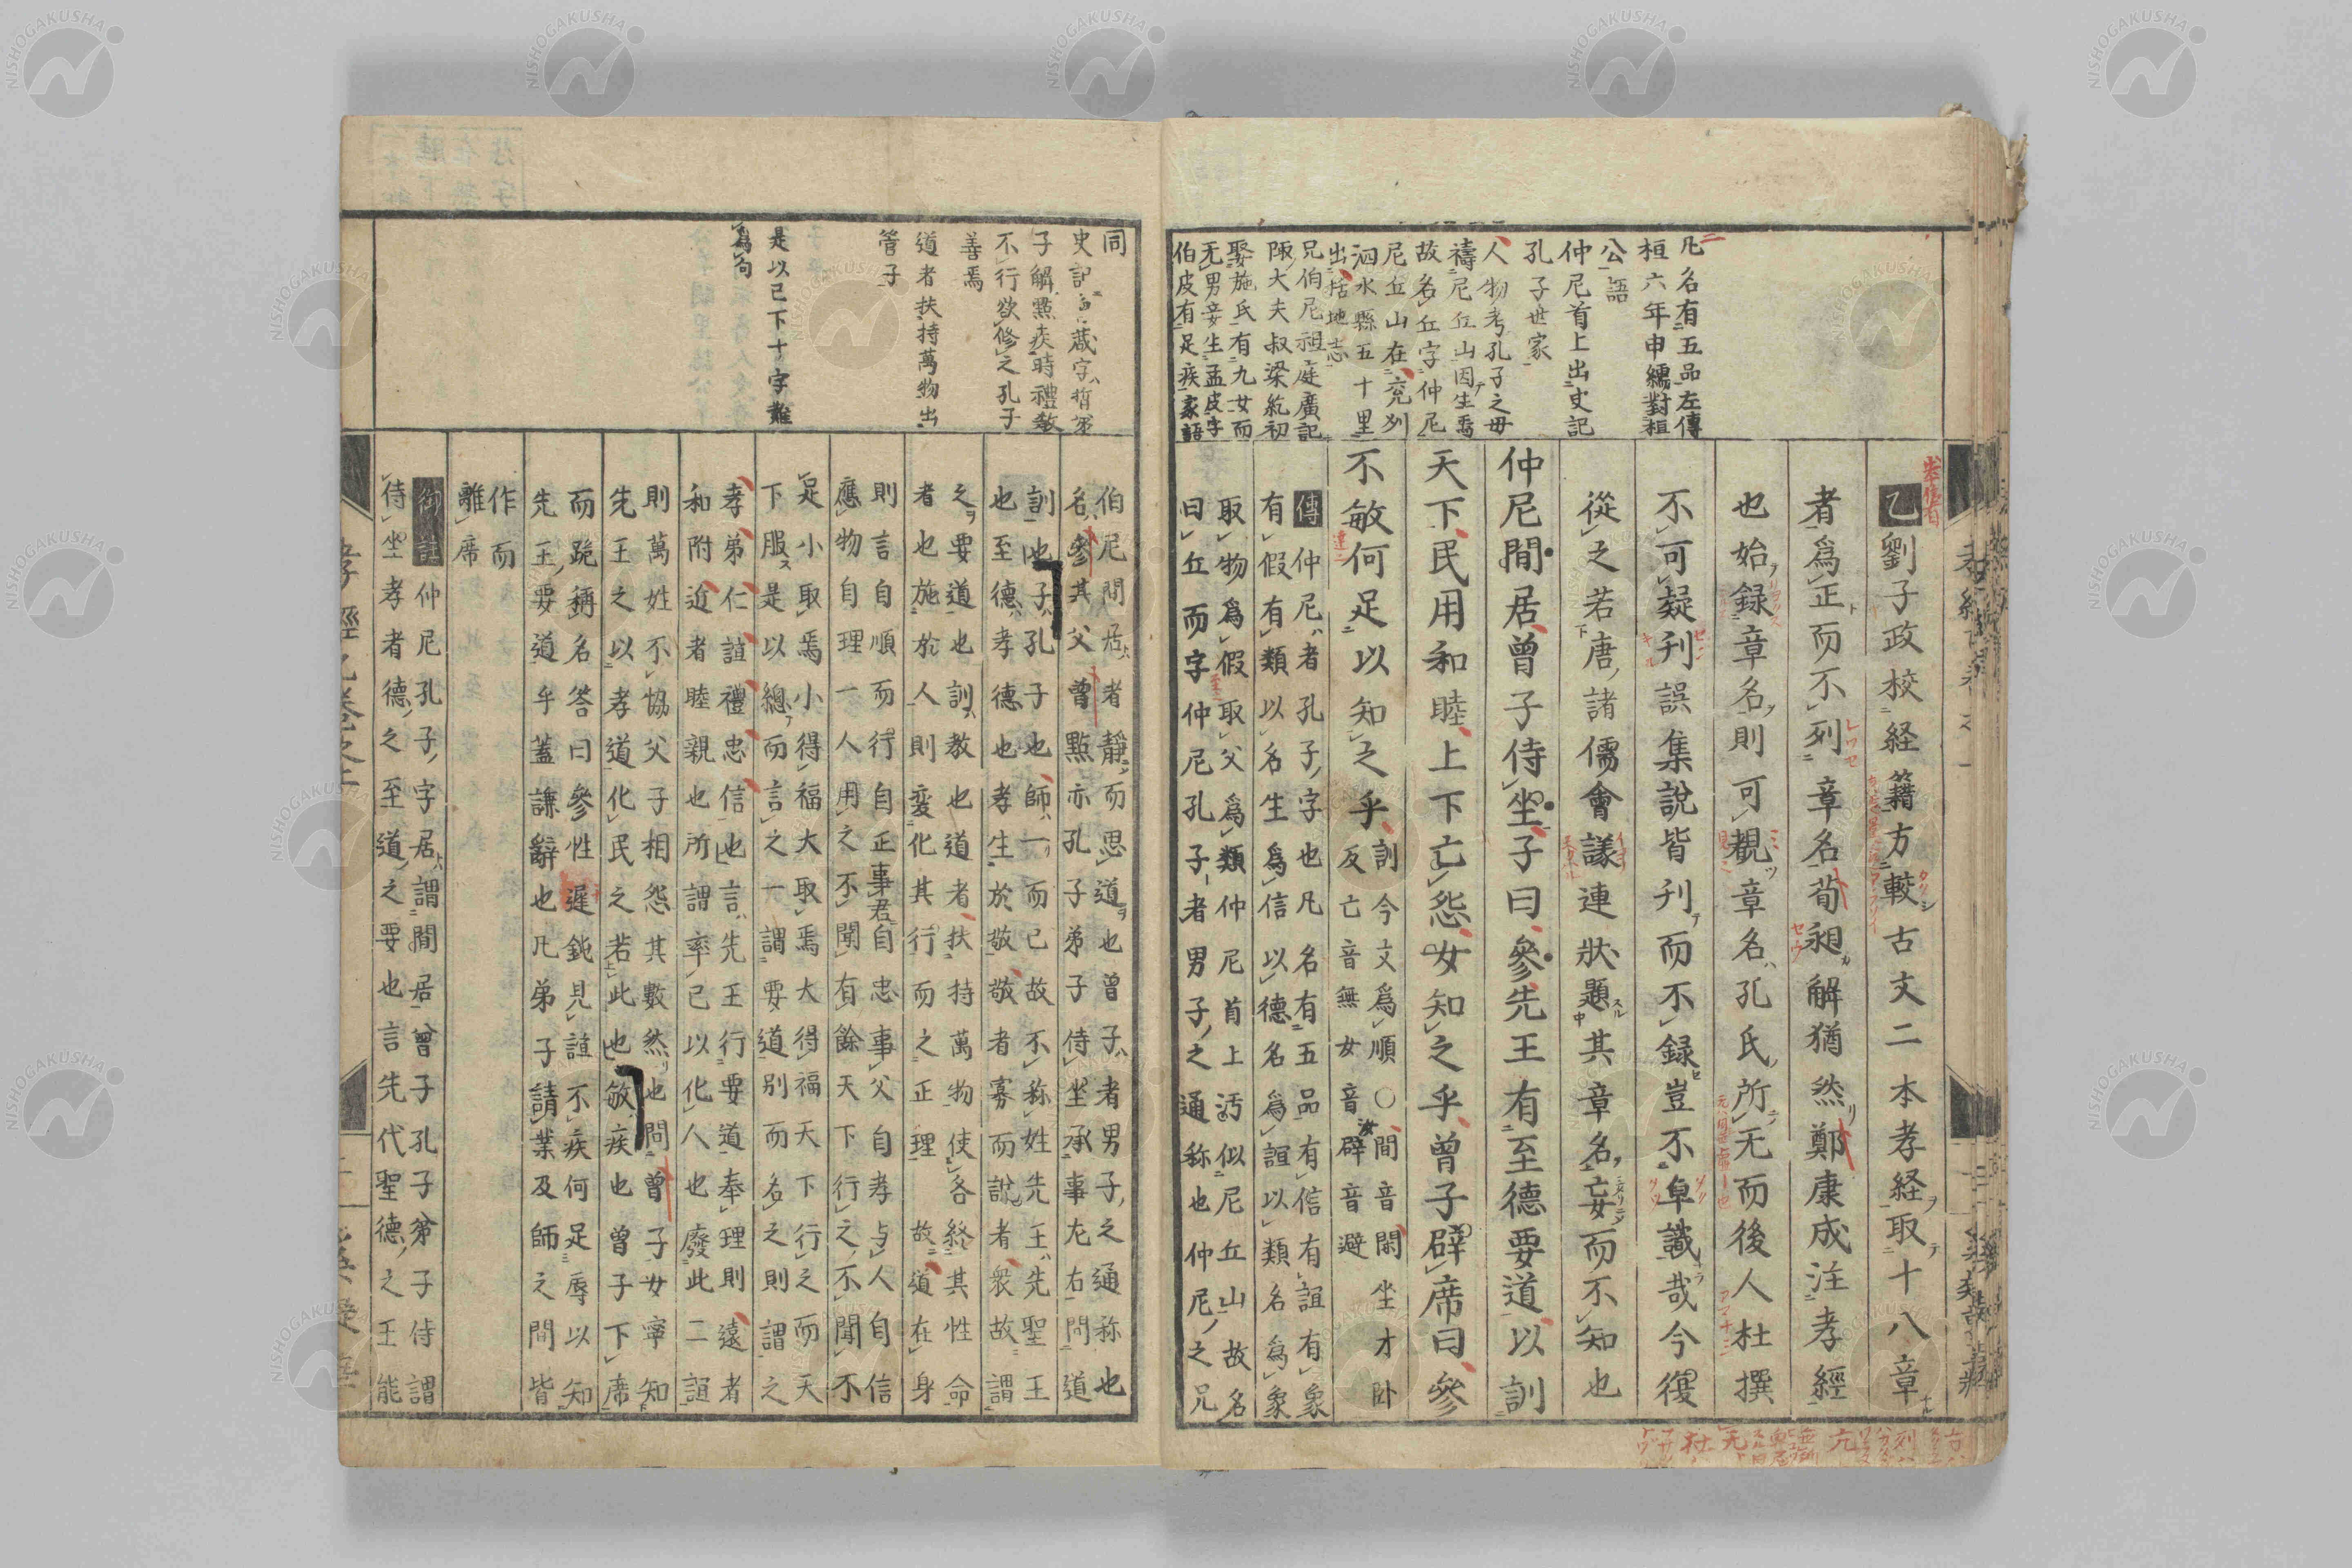 凡名有五品左傳
桓六年申繻對桓
公語
仲尼首上出史記
孔子世家
人物考孔子之母
禱尼丘山因生焉
故名丘字仲尼
尼丘山在兖州
泗水縣五十里
出括地志
兄伯尼祖庭廣記
陬大夫叔梁紇初
娶施氏有九女而
无男妾生孟皮字
伯皮有足疾家語
乙劉子政校経籍方較古文二本孝経取十八章
者爲正而不列章名荀昶解猶然鄭康成注孝經
也始録章名則可覩章名孔氏所无而後人杜撰
不可疑刋誤集說皆刋而不録豈不卓識哉今復
從之若唐諸儒會議連狀題其章名妄而不知也
仲尼閒居曾子侍坐子曰參先王有至德要道以訓
天下民用和睦上下亡怨女知之乎曾子辟席曰參
不敏何足以知之乎
訓今文爲順○閒音閑坐才卧
反亡音無女音汝辟音避
傳仲尼者孔子字也凡名有五品有信有誼有象
有假有類以名生爲信以德名爲誼以類名爲象
取物爲假取父爲類仲尼首上汚似尼丘山故名
曰丘而字仲尼孔子者男子之通称也仲尼之兄
同
子解點疾時禮教
不行欲修之孔子
善焉
道者扶持萬物出
管子
是以已下十字難
爲句
伯尼閒居者靜而思道也曾子者男子之通称也
名參其父曾點亦孔子弟子侍坐承事左右問道
訓也子孔子也師一而已故不称姓先王先聖王
也至德孝德也孝生於敬敬者寡而說者衆故謂
之要道也訓教也道者扶持萬物使各終其性命
者也施於人則変化其行而之正理故道在身
則言自順而行自正事君自忠事父自孝与人自信
應物自理一人用之不聞有餘天下行之不聞不
足小取焉小得福大取焉大得福天下行之而天
下服是以總而言之一謂要道别而名之則謂之
孝弟仁誼禮忠信也言先王行要道奉理則遠者
和附近者睦親也所謂率己以化人也廢此二誼
則萬姓不協父子相怨其數然也問曾子女寧知
先王之以孝道化民之若此也敏疾也曾子下席
而跪稱名荅曰參性遲鈍見誼不疾何足辱以知
先王要道乎蓋謙辭也凡弟子請業及師之問皆
作而
離席
御註仲尼孔子字居謂閒居曾子孔子弟子侍謂
侍坐孝者德之至道之要也言先代聖德之王能
孝經